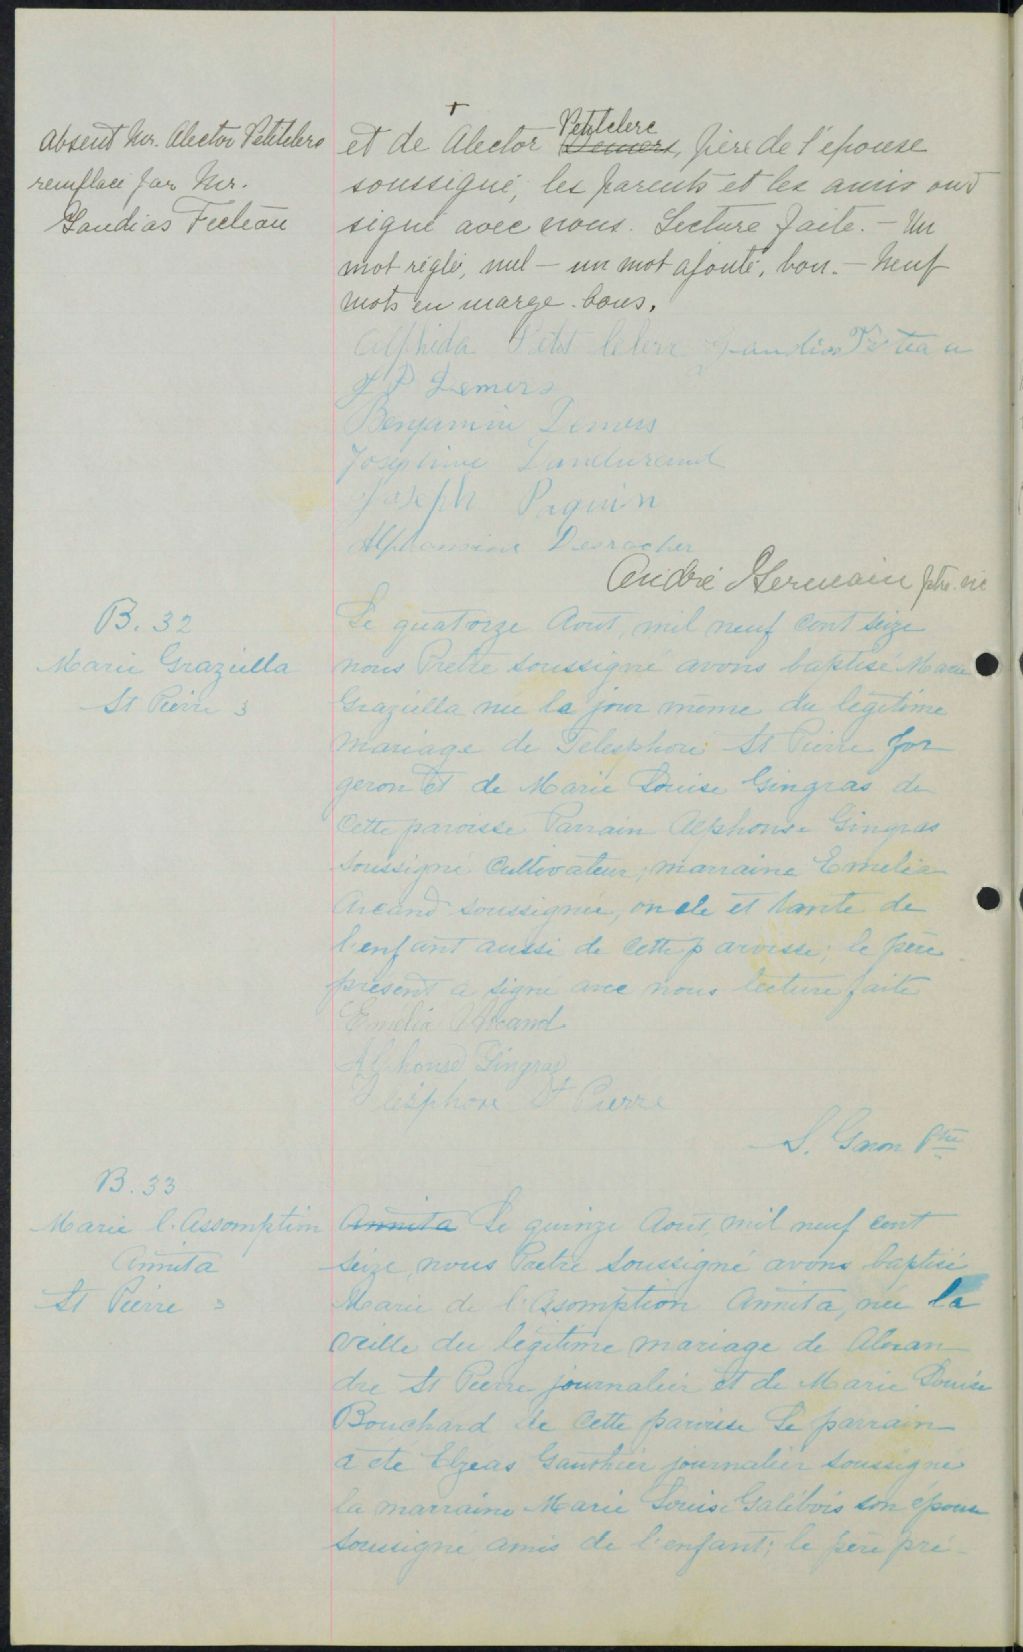 absent Mr. Alector Petitclerc
remplacé par Mr.
Gaudias Fecteau
Petitclerc
et de Alector Demers, père de l'épouse
soussigné, les parents et les amis ont
signé avec nous. Lecture faite. – Un
mot réglé, nul – un mot ajouté, bon. – Neuf
mots en marge bons.
Alphida Petitclerc Gaudias Fecteau
J P Demers
Benjamin Demers
Josephine Dandurand
Joseph Paquin
Alphonsine Desrocher
André Germain ptre. vic
B. 32
Marie Graziella
St Pierre
Le quatorze Aout, mil neuf cent seize
nous Pretre soussigné avons baptisé Marie
Graziella née le jour même du légitime
mariage de Telesphore St Pierre for
geron et de Marie Louise Gingras de
cette paroisse Parrain Alphonse Gingras
soussigné cultivateur, marraine Emelia
Arcand soussignée, oncle et tante de
l'enfant aussi de cette paroisse; le père
présent a signé avec nous lecture faite
Emelia Arcand
Alphonse Gingras
Télésphore St Pierre
S. Ptre
B. 33
Marie l'Assomption
Annita
St Pierre
Annita Le quinze Aout, mil neuf cent
seize, nous Pretre soussigné avons baptisé
Marie de l'Asomption Annita, née la
veille du légitime mariage de Alexan
dre St Pierre journalier et de Marie Louise
Bouchard de cette paroisse Le parrain
a été Elzeas Gauthier journalier soussigné
la marraine Marie Louise Galibois son épouse
soussigné amis de l'enfant; le père pré-